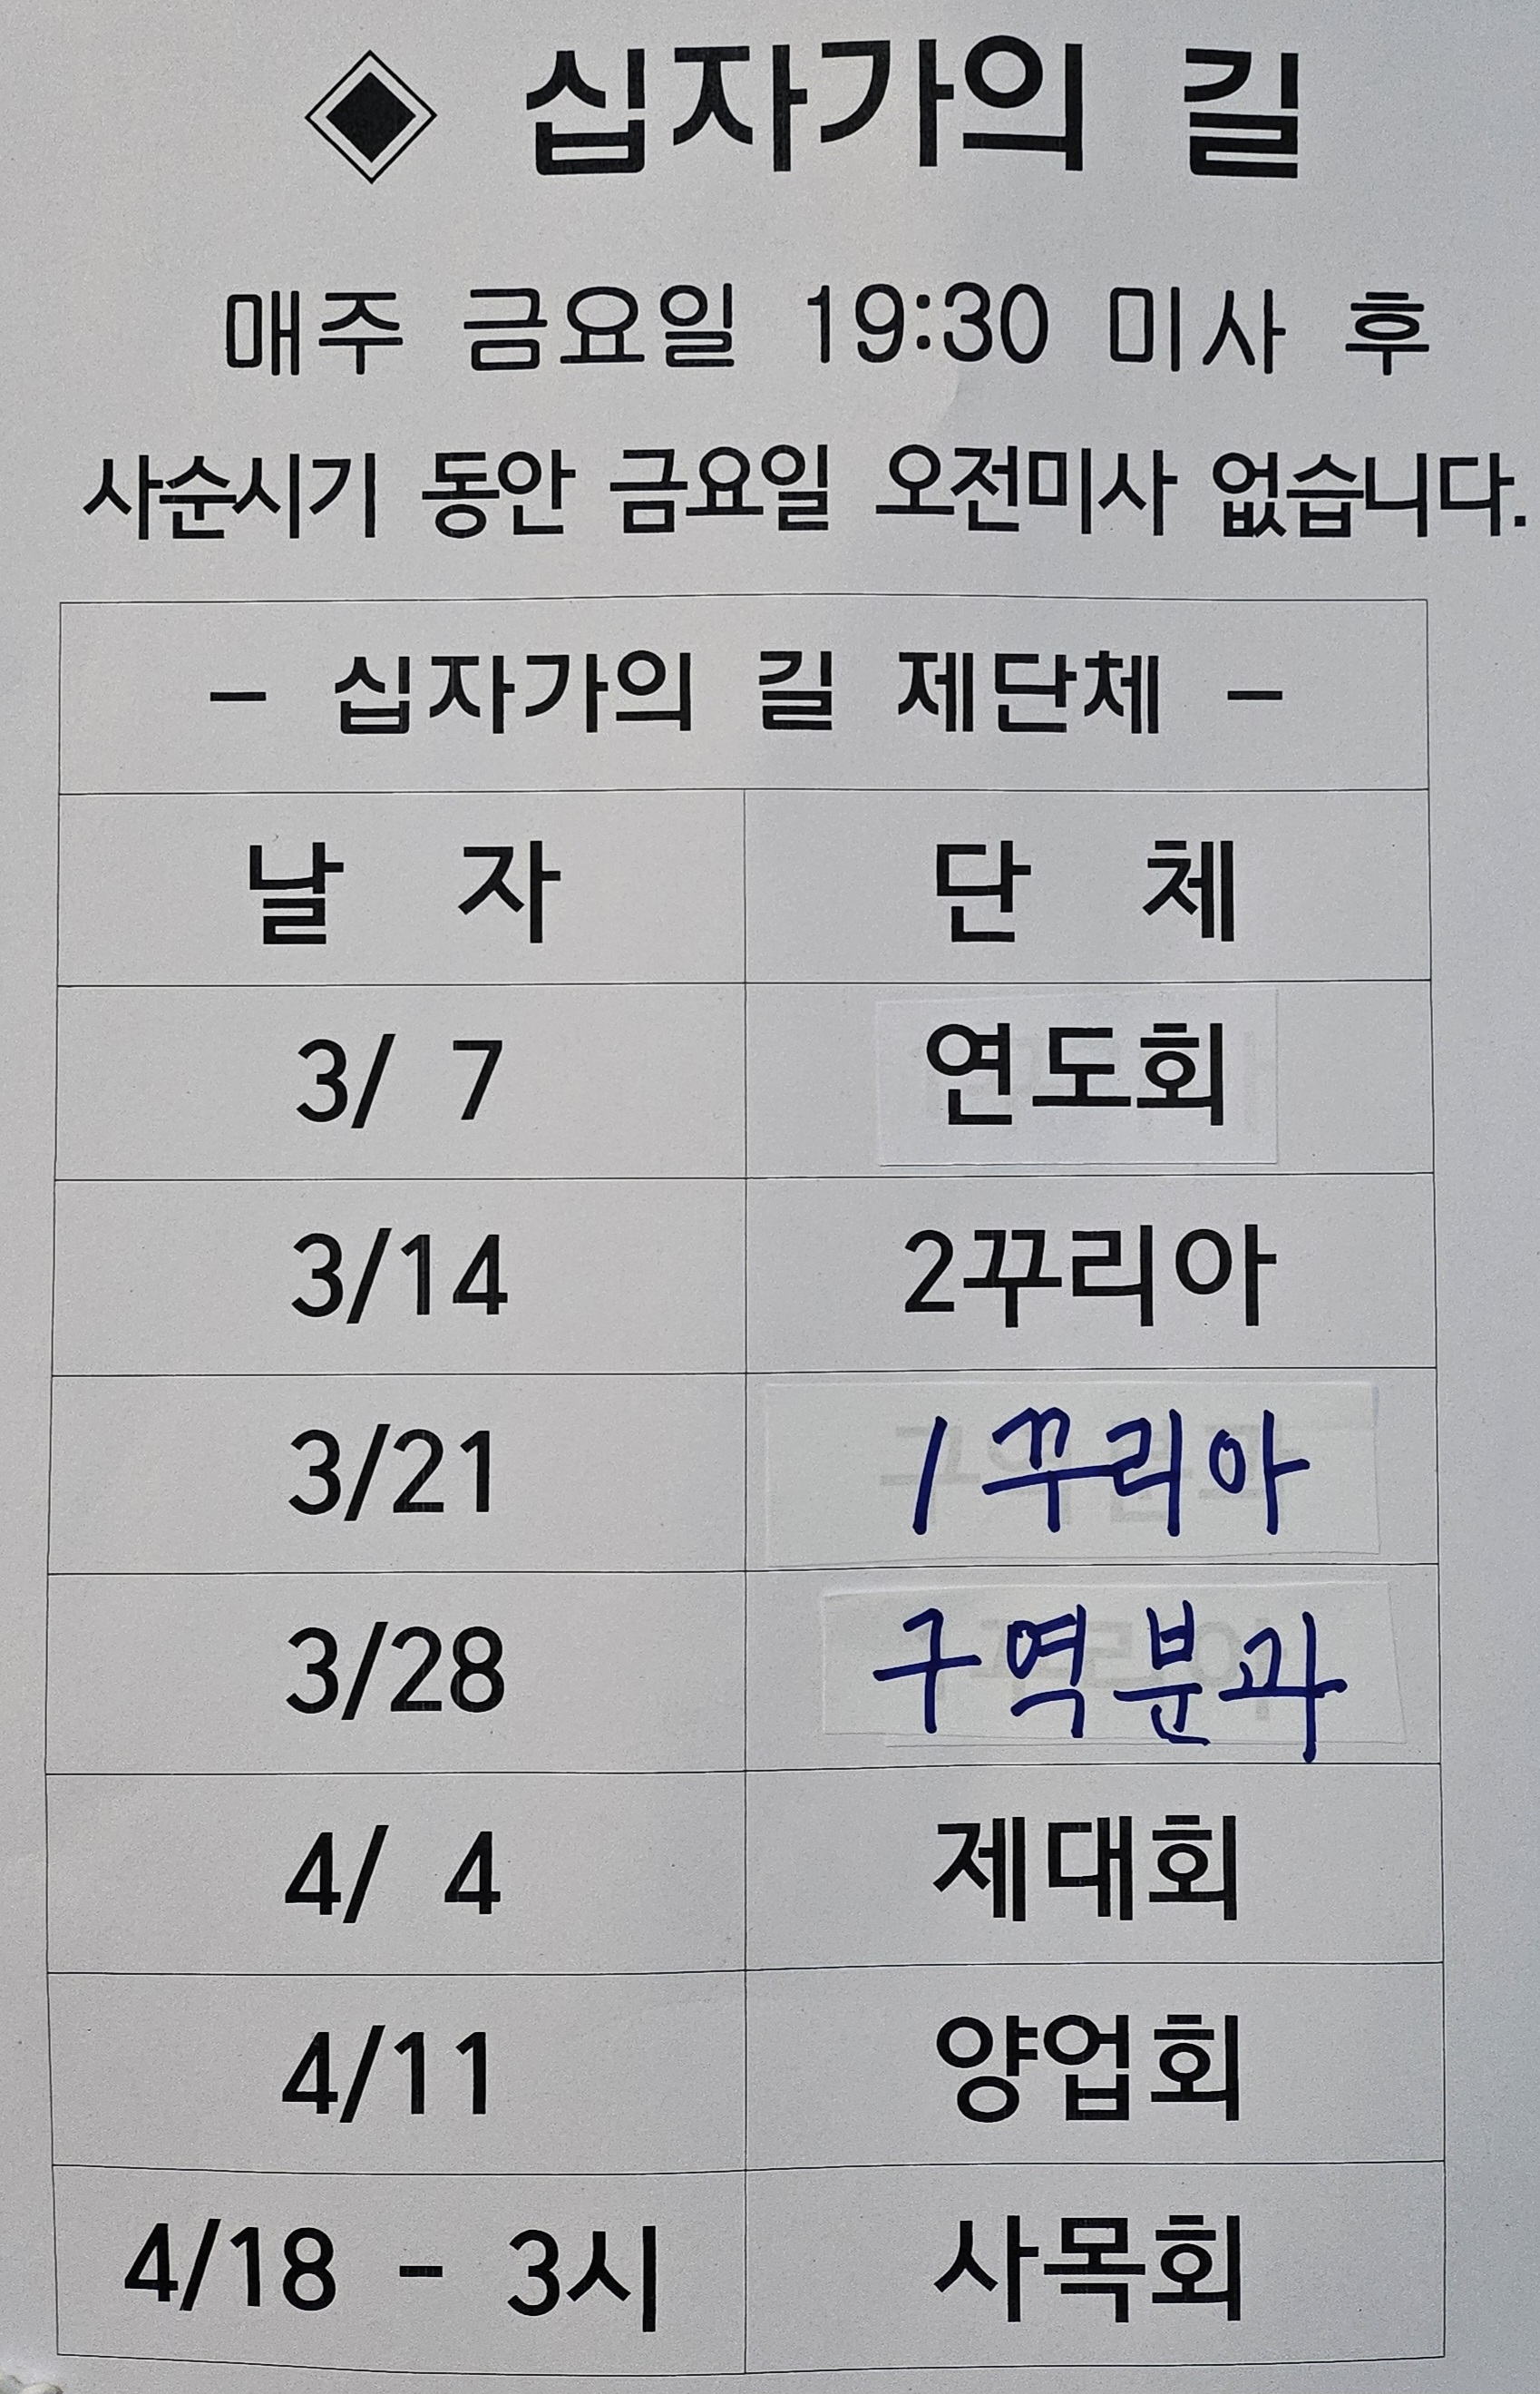 ◈ 십자가의 길
매주 금요일 19:30 미사 후
사순시기 동안 금요일 오전미사 없습니다.
- 십자가의 길 제단체 -
날 자 단 체
3/ 7 연도회
3/14 2꾸리아
3/21 1꾸리아
3/28 구역분과
4/ 4 제대회
4/11 양업회
4/18 - 3시 사목회